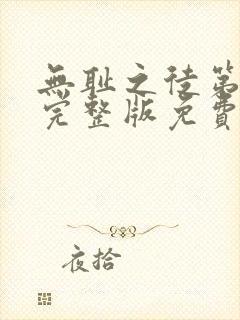 無耻之徒第
完整版免費
夜拾